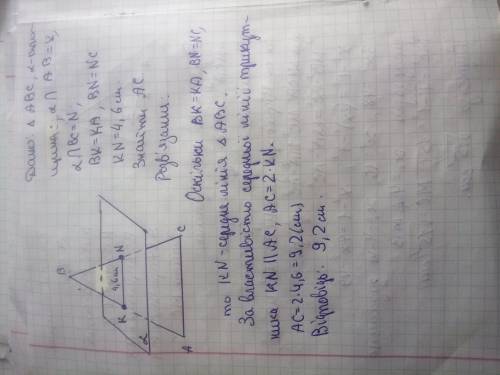 Дано: △ ABC, α-пло-
щина, α ∩ AB = K,
α ∩ BC = N,
BK = KA, BN = NC
KN = 4,6 см.
Знайти AC.
Розв'язання.
Оскільки BK = KA, BN = NC,
то KN - середня лінія △ ABC.
За властивістю середньої лінії трикут-
ника KN || AC, AC = 2 · KN.
AC = 2 · 4,6 = 9,2 (см)
Відповідь: 9,2 см.
B
K
4,6 см
N
α
A
C